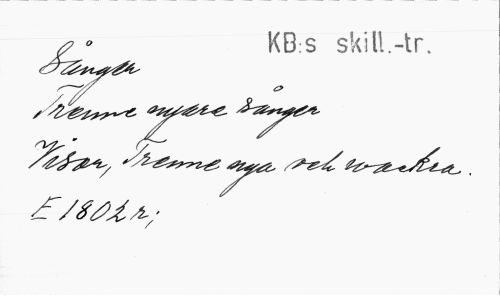 KB:s skill.-tr.
Sånger
Trenne nyare sånger
Visor, Trenne nya och wackra.
E 1802 r;